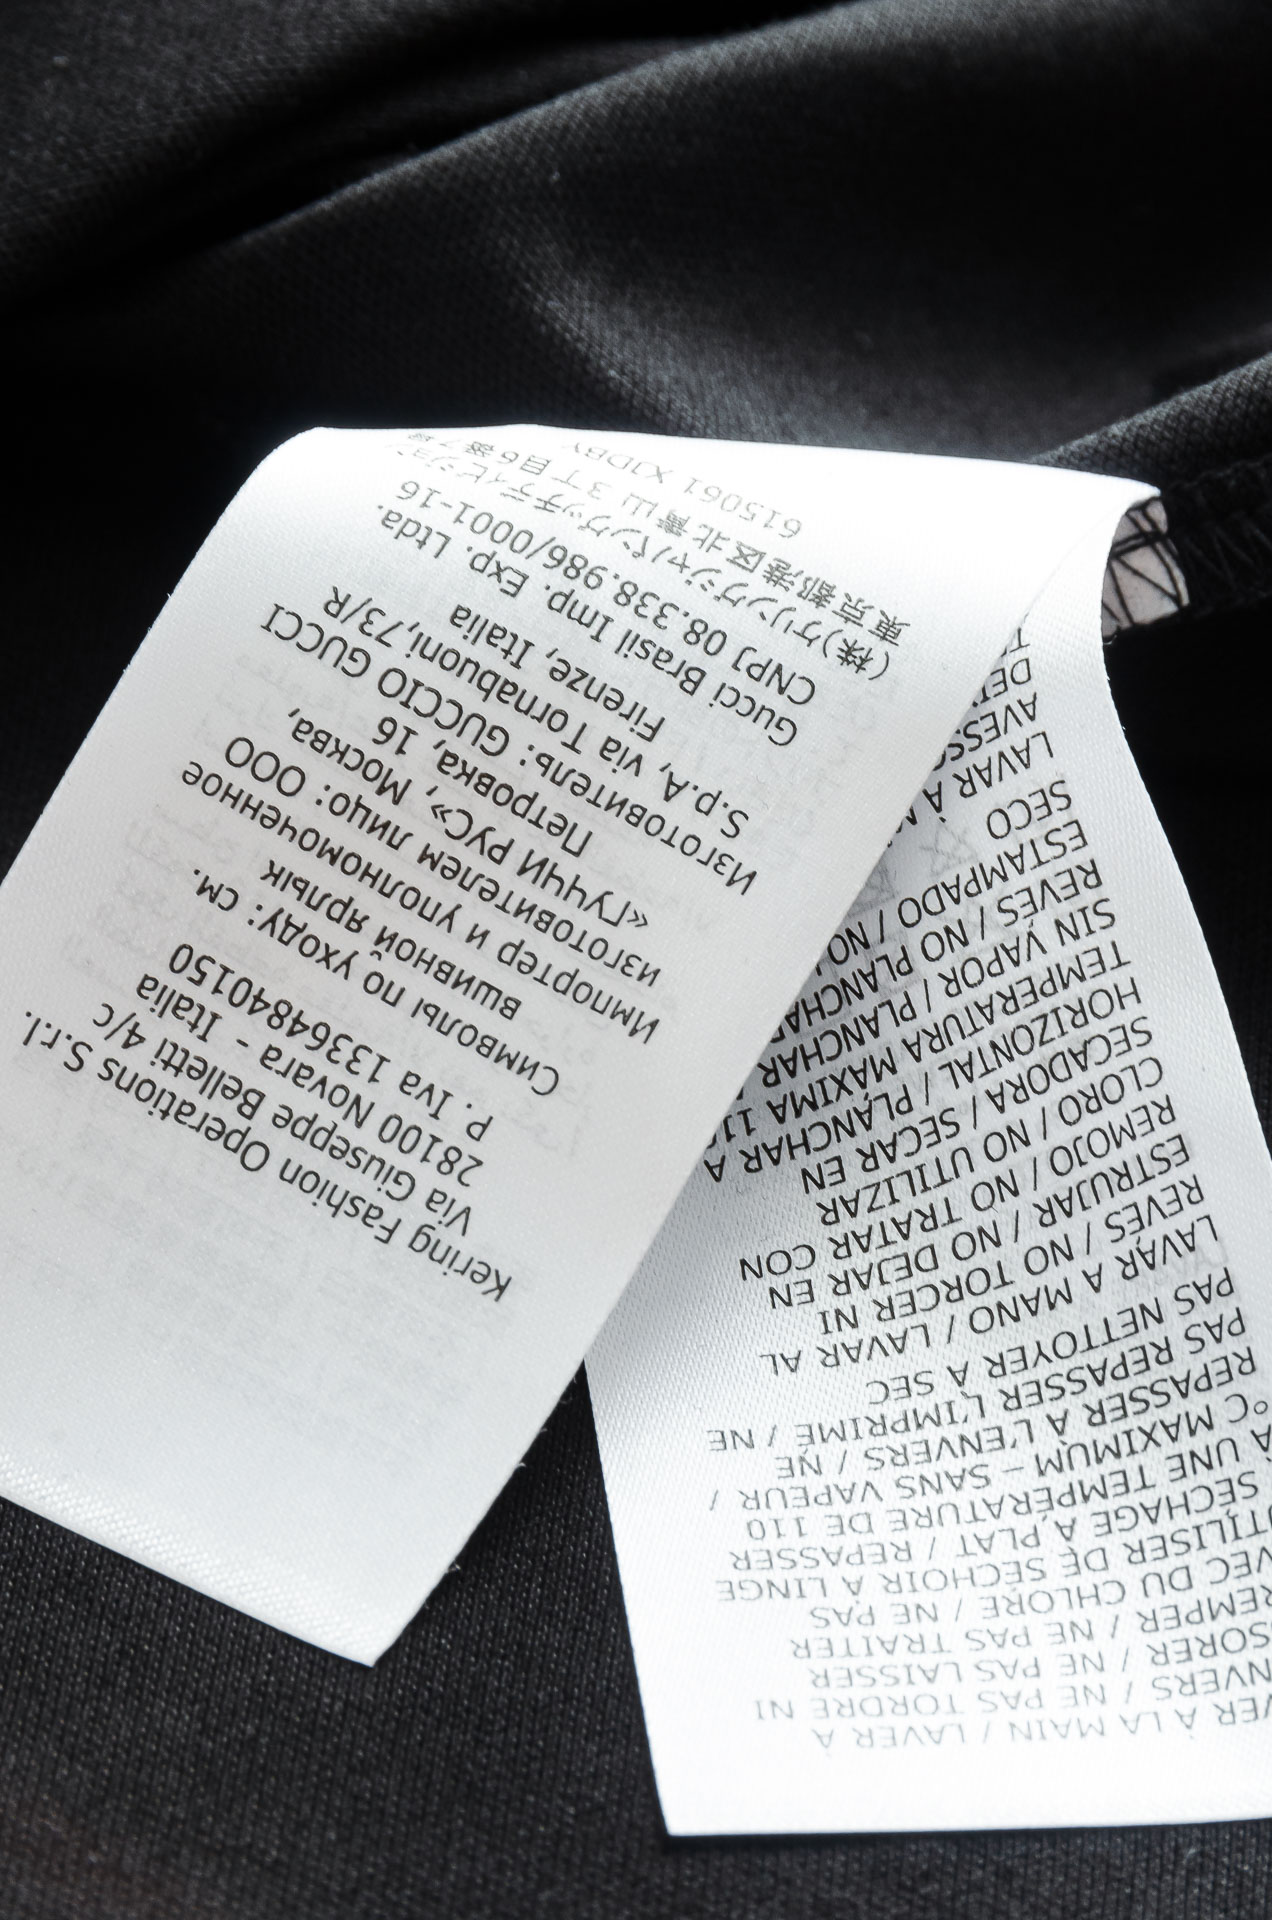 Kering Fashion Operations S.r.l.
Via Giuseppe Belletti 4/c
28100 Novara - Italia
P. Iva 13364840150
Символы по уходу: см.
вшивной ярлык
Импортер и уполномоченное
изготовителем лицо: ООО
«ГУЧЧИ РУС», Москва,
Петровка, 16
Изготовитель: GUCCIO GUCCI
S.p.A, via Tornabuoni,73/R
Firenze, Italia
Gucci Brasil Imp. Exp. Ltda.
CNPJ 08.338.986/0001-16
(株)ケリングジャパングッチディビジョン
東京都港区北青山3丁目6番7号
615061 XJDBY
VER À LA MAIN / LAVER À
NVERS / NE PAS TORDRE NI
SORER / NE PAS LAISSER
REMPER / NE PAS TRAITER
VEC DU CHLORE / NE PAS
UTILISER DE SÉCHOIR À LINGE
SÉCHAGE À PLAT / REPASSER
À UNE TEMPÉRATURE DE 110
°C MAXIMUM – SANS VAPEUR /
REPASSER À L'ENVERS / NE
PAS REPASSER L'IMPRIMÉ / NE
PAS NETTOYER À SEC
LAVAR A MANO / LAVAR AL
REVÉS / NO TORCER NI
ESTRUJAR / NO DEJAR EN
REMOJO / NO TRATAR CON
CLORO / NO UTILIZAR
SECADORA / SECAR EN
HORIZONTAL / PLANCHAR A
TEMPERATURA MÁXIMA 11
SIN VAPOR / PLANCHAR
REVÉS / NO PLANCHAR
ESTAMPADO / NO
SECO
LAVAR À
AVESS
DEI